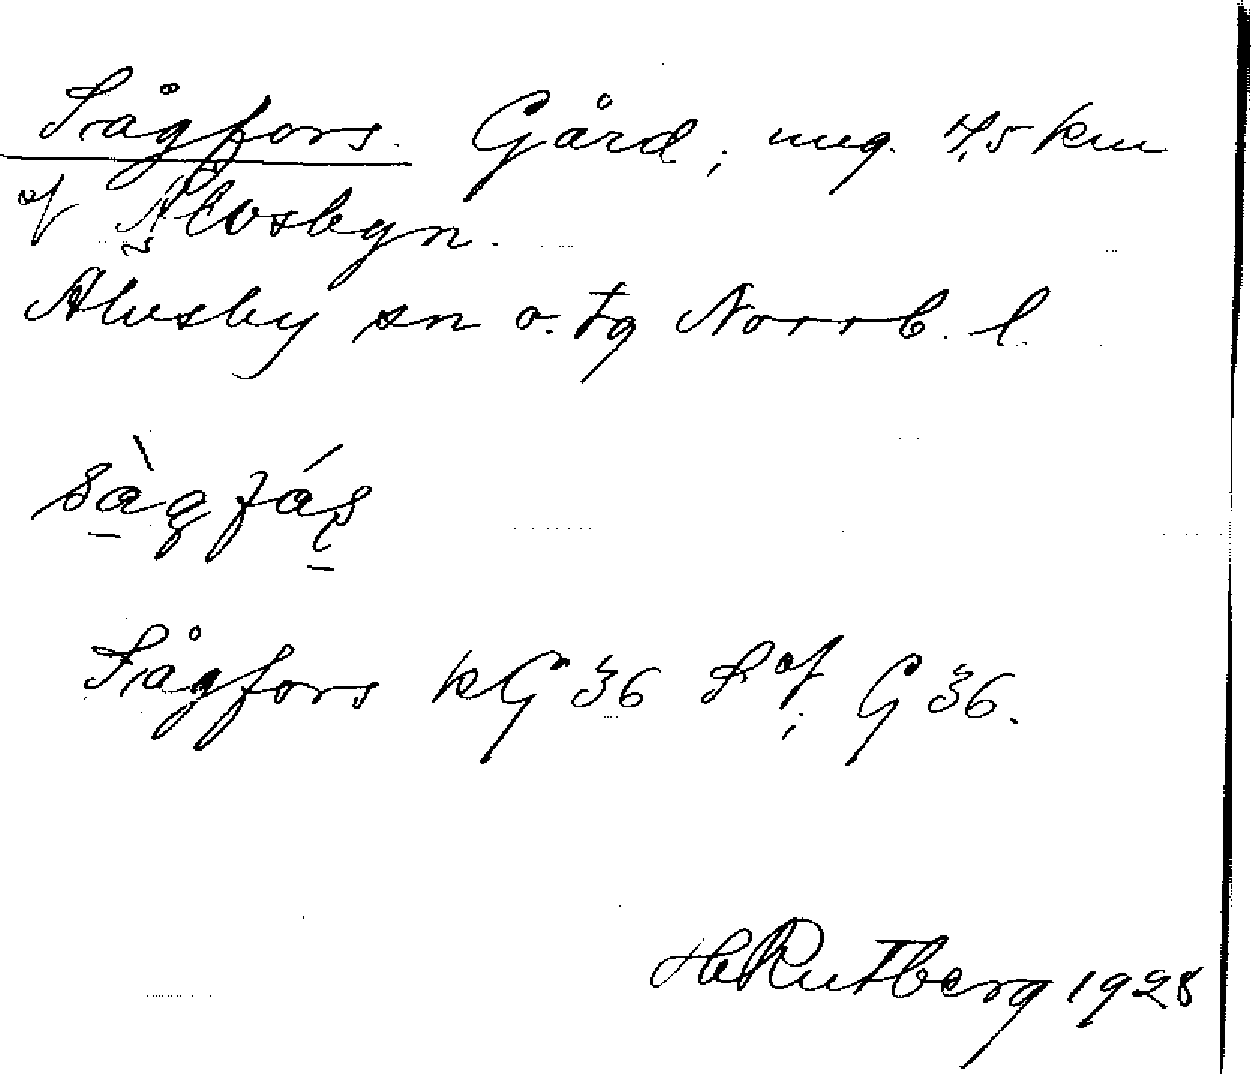 Sågfors. Gård, ung. 4,5 km
af Älvsbyn.
Älvsby sn o. tg Norrb. l.
sàgfás
Sågfors kG 36 Laf, G 36.
H Rutberg 1928